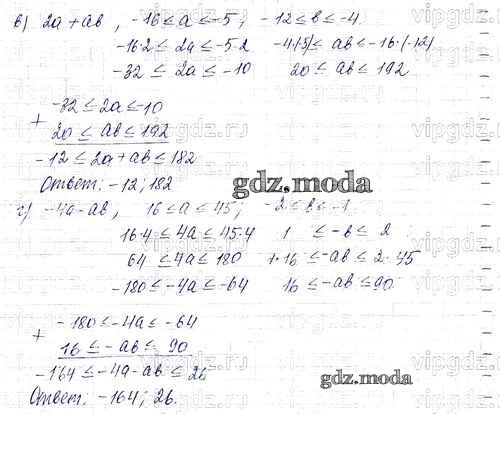 в) 2a + ab, -16 ≤ a ≤ -5; -12 ≤ b ≤ -4.
-16·2 ≤ 2a ≤ -5·2 -4·(-5) ≤ ab ≤ -16·(-12)
-32 ≤ 2a ≤ -10 20 ≤ ab ≤ 192
-32 ≤ 2a ≤ -10
+
20 ≤ ab ≤ 192
-12 ≤ 2a + ab ≤ 182
Ответ: -12; 182
gdz.moda
г) -4a - ab, 16 ≤ a ≤ 45; -2 ≤ b ≤ -1
16·4 ≤ 4a ≤ 45·4 1 ≤ -b ≤ 2
64 ≤ 4a ≤ 180 1·16 ≤ -ab ≤ 2·45
-180 ≤ -4a ≤ -64 16 ≤ -ab ≤ 90
-180 ≤ -4a ≤ -64
+
16 ≤ -ab ≤ 90
-164 ≤ -4a - ab ≤ 26
gdz.moda
Ответ: -164; 26.